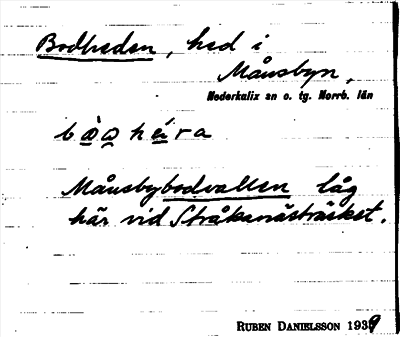 Bodheden, hed i
Månsbyn,
Nederkalix sn o. tg. Norrb. län
Månsbybodvallen låg
här vid Stråkanästräsket.
RUBEN DANIELSSON 1939